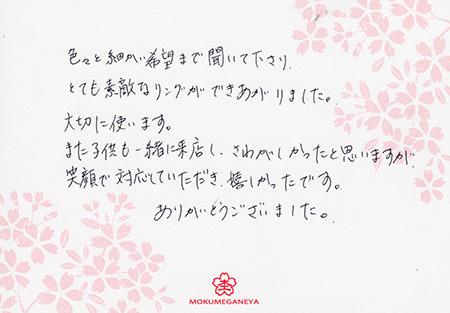 色々と細かい希望まで聞いて下さり、
とても素敵なリングができあがりました。
大切に使います。
また子供も一緒に来店し、さわがしかったと思いますが、
笑顔で対応していただき、嬉しかったです。
ありがとうございました。
MOKUMEGANEYA